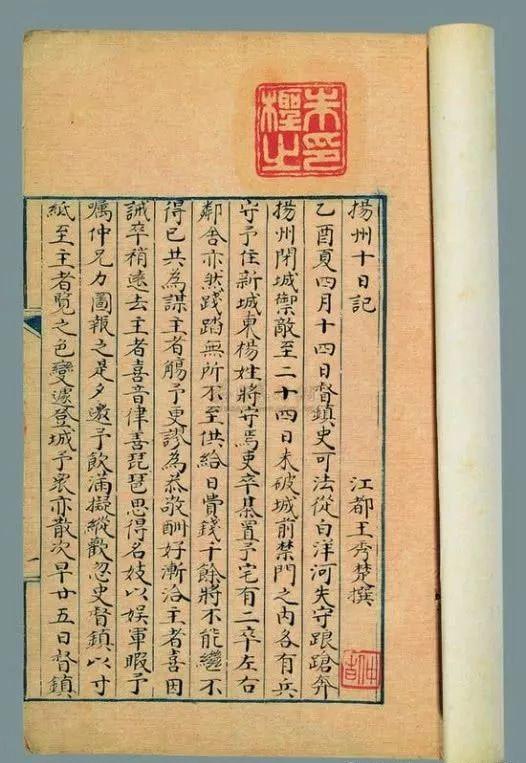 揚州十日記 江都王秀楚撰
乙酉夏四月十四日督鎮史可法從白洋河失守踉蹌奔
揚州閉城禦敵至二十四日未破城前禁門之內各有兵
守予住新城東楊姓將守焉吏卒棊置予宅有二卒左右
鄰舍亦然踐踏無所不至供給日費錢千餘將不能繼不
得已共為謀主者觴予更謬為恭敬酬好漸洽主者喜因
誡卒稍遠去主者喜音律善琵琶思得名妓以娛軍暇予
囑仲兄力圖報之是夕邀予飲滿擬縱歡忽史督鎮以寸
紙至主者覽之色變遽登城予眾亦散次早廿五日督鎮